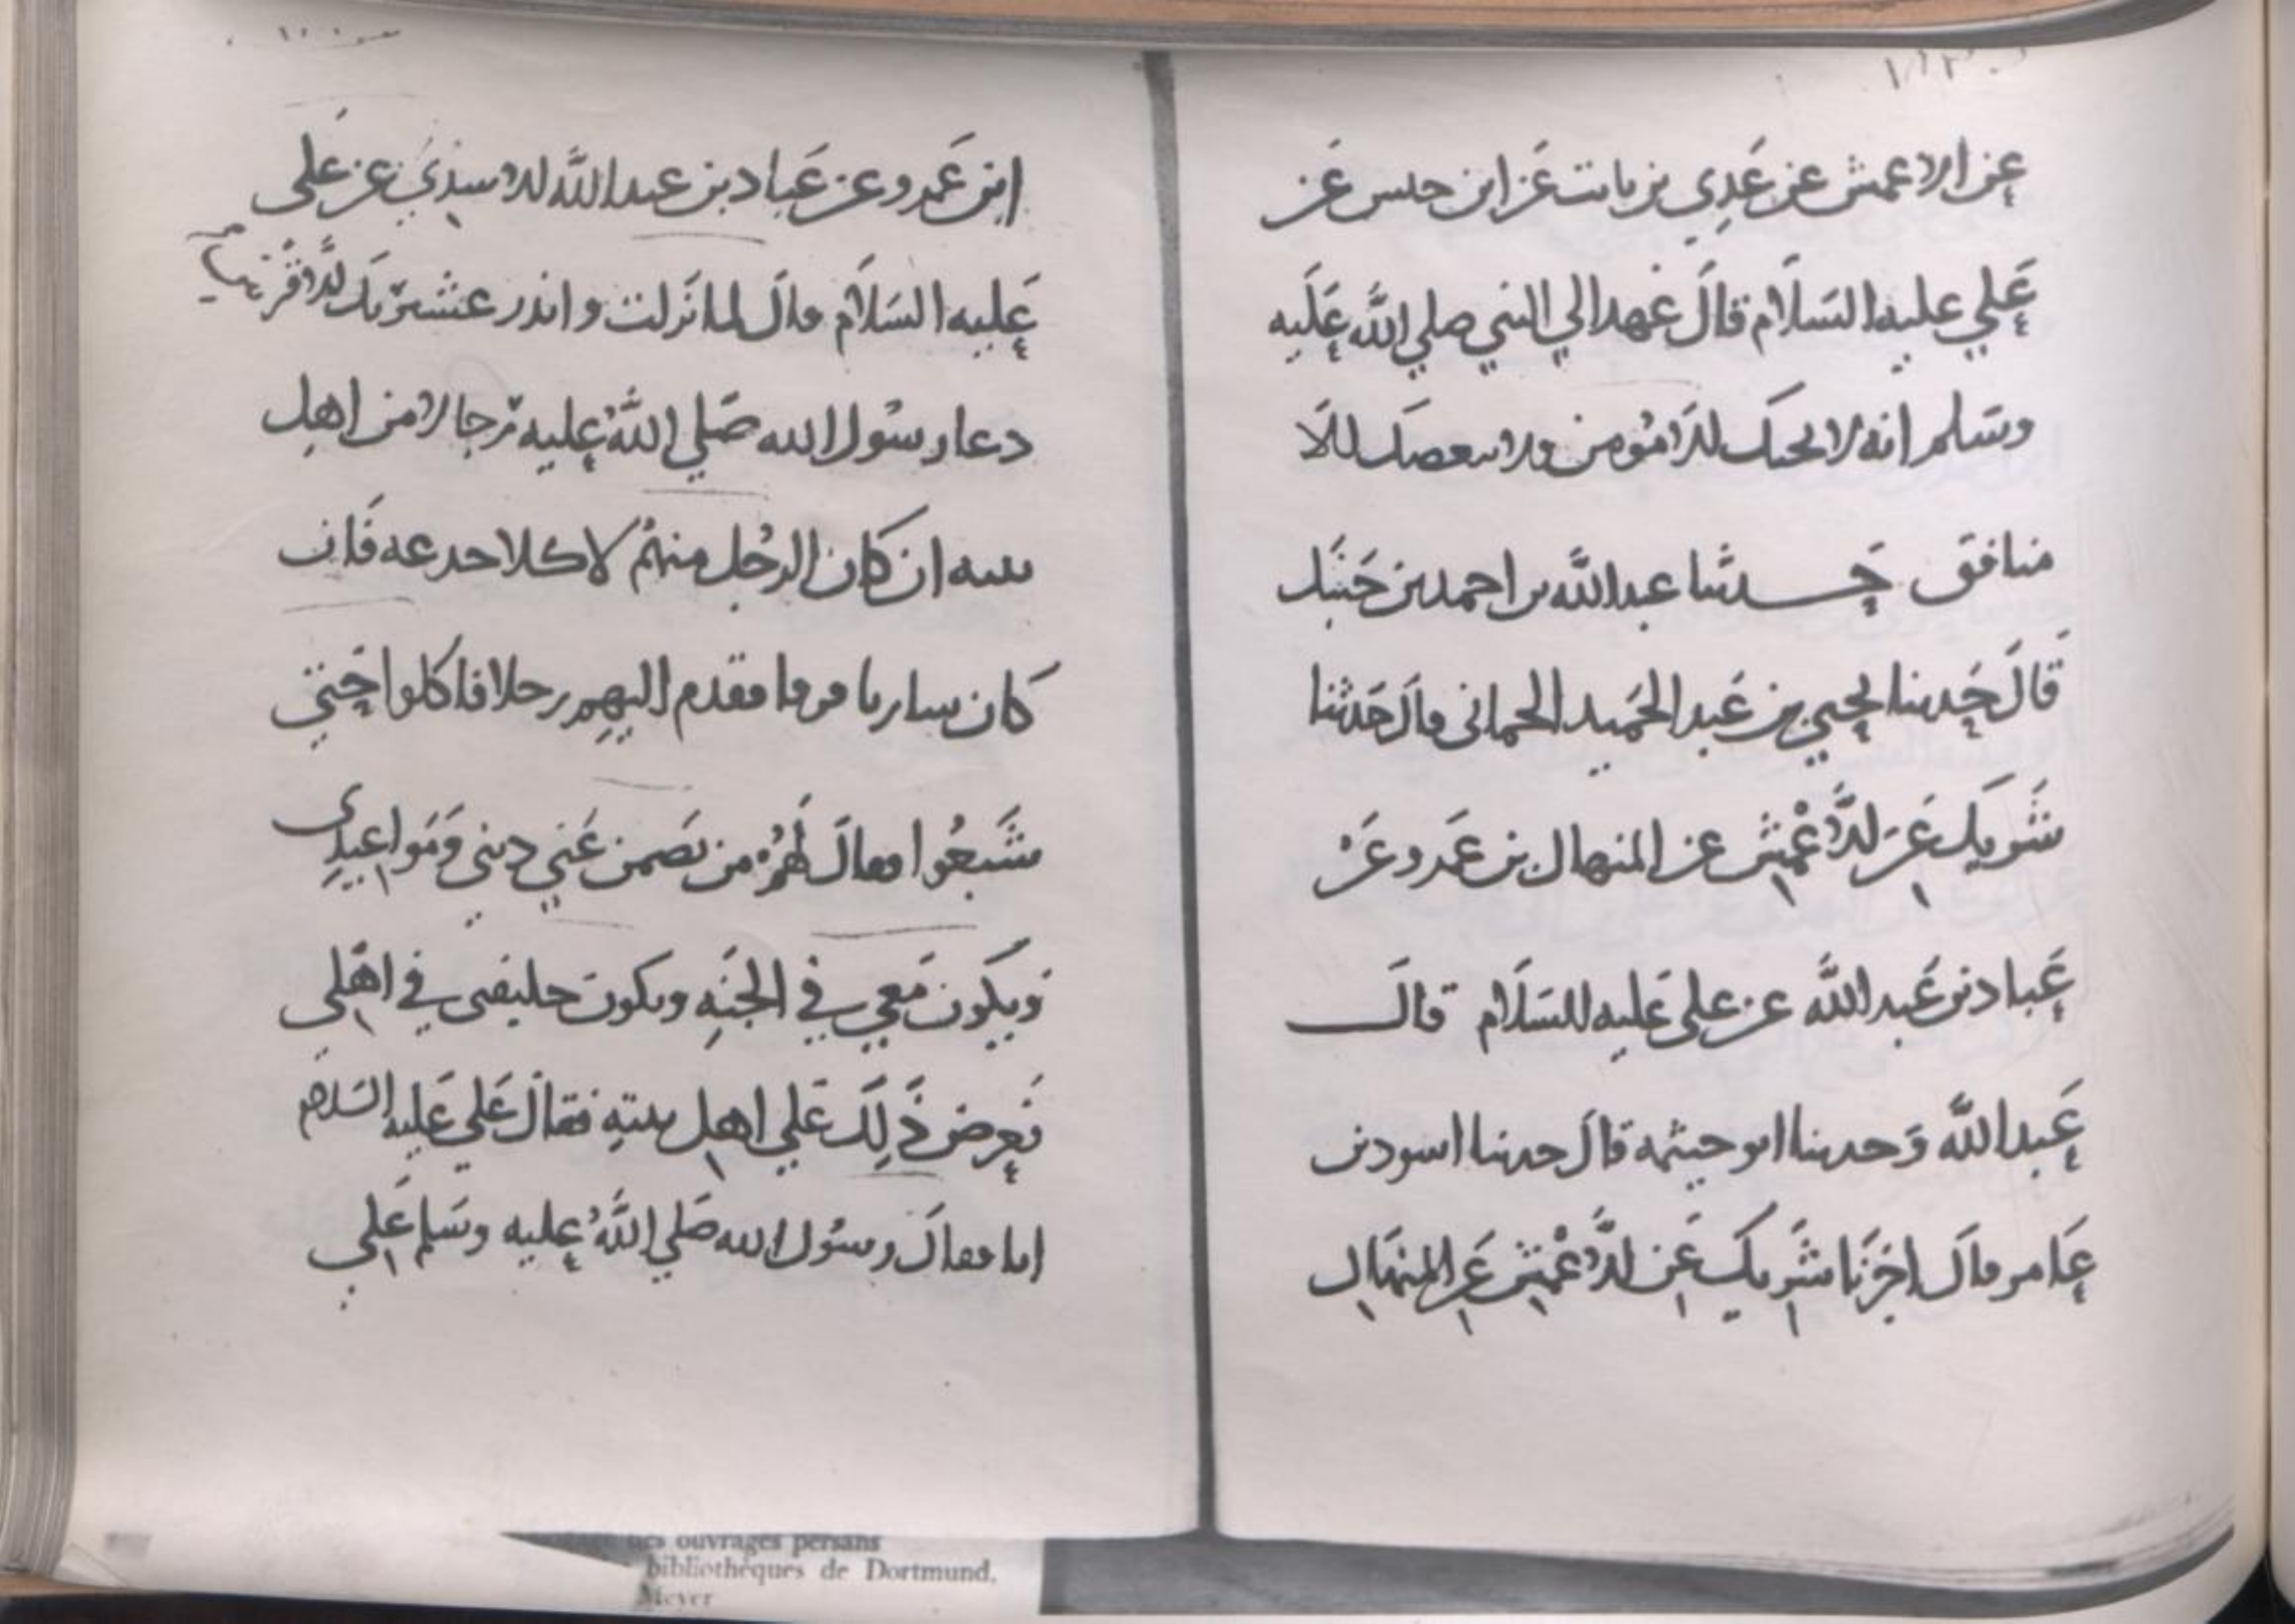 عن الاعمش عن عدي بن ثابت عن ابن حبيش عن
علي عليه السلام قال عهد الي النبي صلي الله عليه
وسلم انه لا يحبك الا مؤمن ولا يبغضك الا
منافق حدثنا عبد الله بن احمد بن حنبل
قال حدثنا يحيي بن عبد الحميد الحماني قال حدثنا
شريك عن الاعمش عن المنهال بن عمرو عن
عباد بن عبد الله عن علي عليه السلام قال
عبد الله وحدثنا ابو خيثمة قال حدثنا اسود بن
عامر قال اخبرنا شريك عن الاعمش عن المنهال
ابن عمرو عن عباد بن عبد الله الاسيدي عن علي
عليه السلام قال لما نزلت وانذر عشيرتك الاقربين
دعا رسول الله صلي الله عليه رجالا من اهل
بيته ان كان الرجل منهم لاكلا جدعه فان
كان شاربا فرقا فقدم اليهم رجلا فاكلوا حتي
شبعوا فقال لهم من يضمن عني ديني ومواعيدي
ويكون معي في الجنه ويكون خليفتي في اهلي
فعرض ذلك علي اهل بيته فقال علي عليه السلام
انا فقال رسول الله صلي الله عليه وسلم علي
des ouvrages persans
bibliothèques de Dortmund,
Meyer